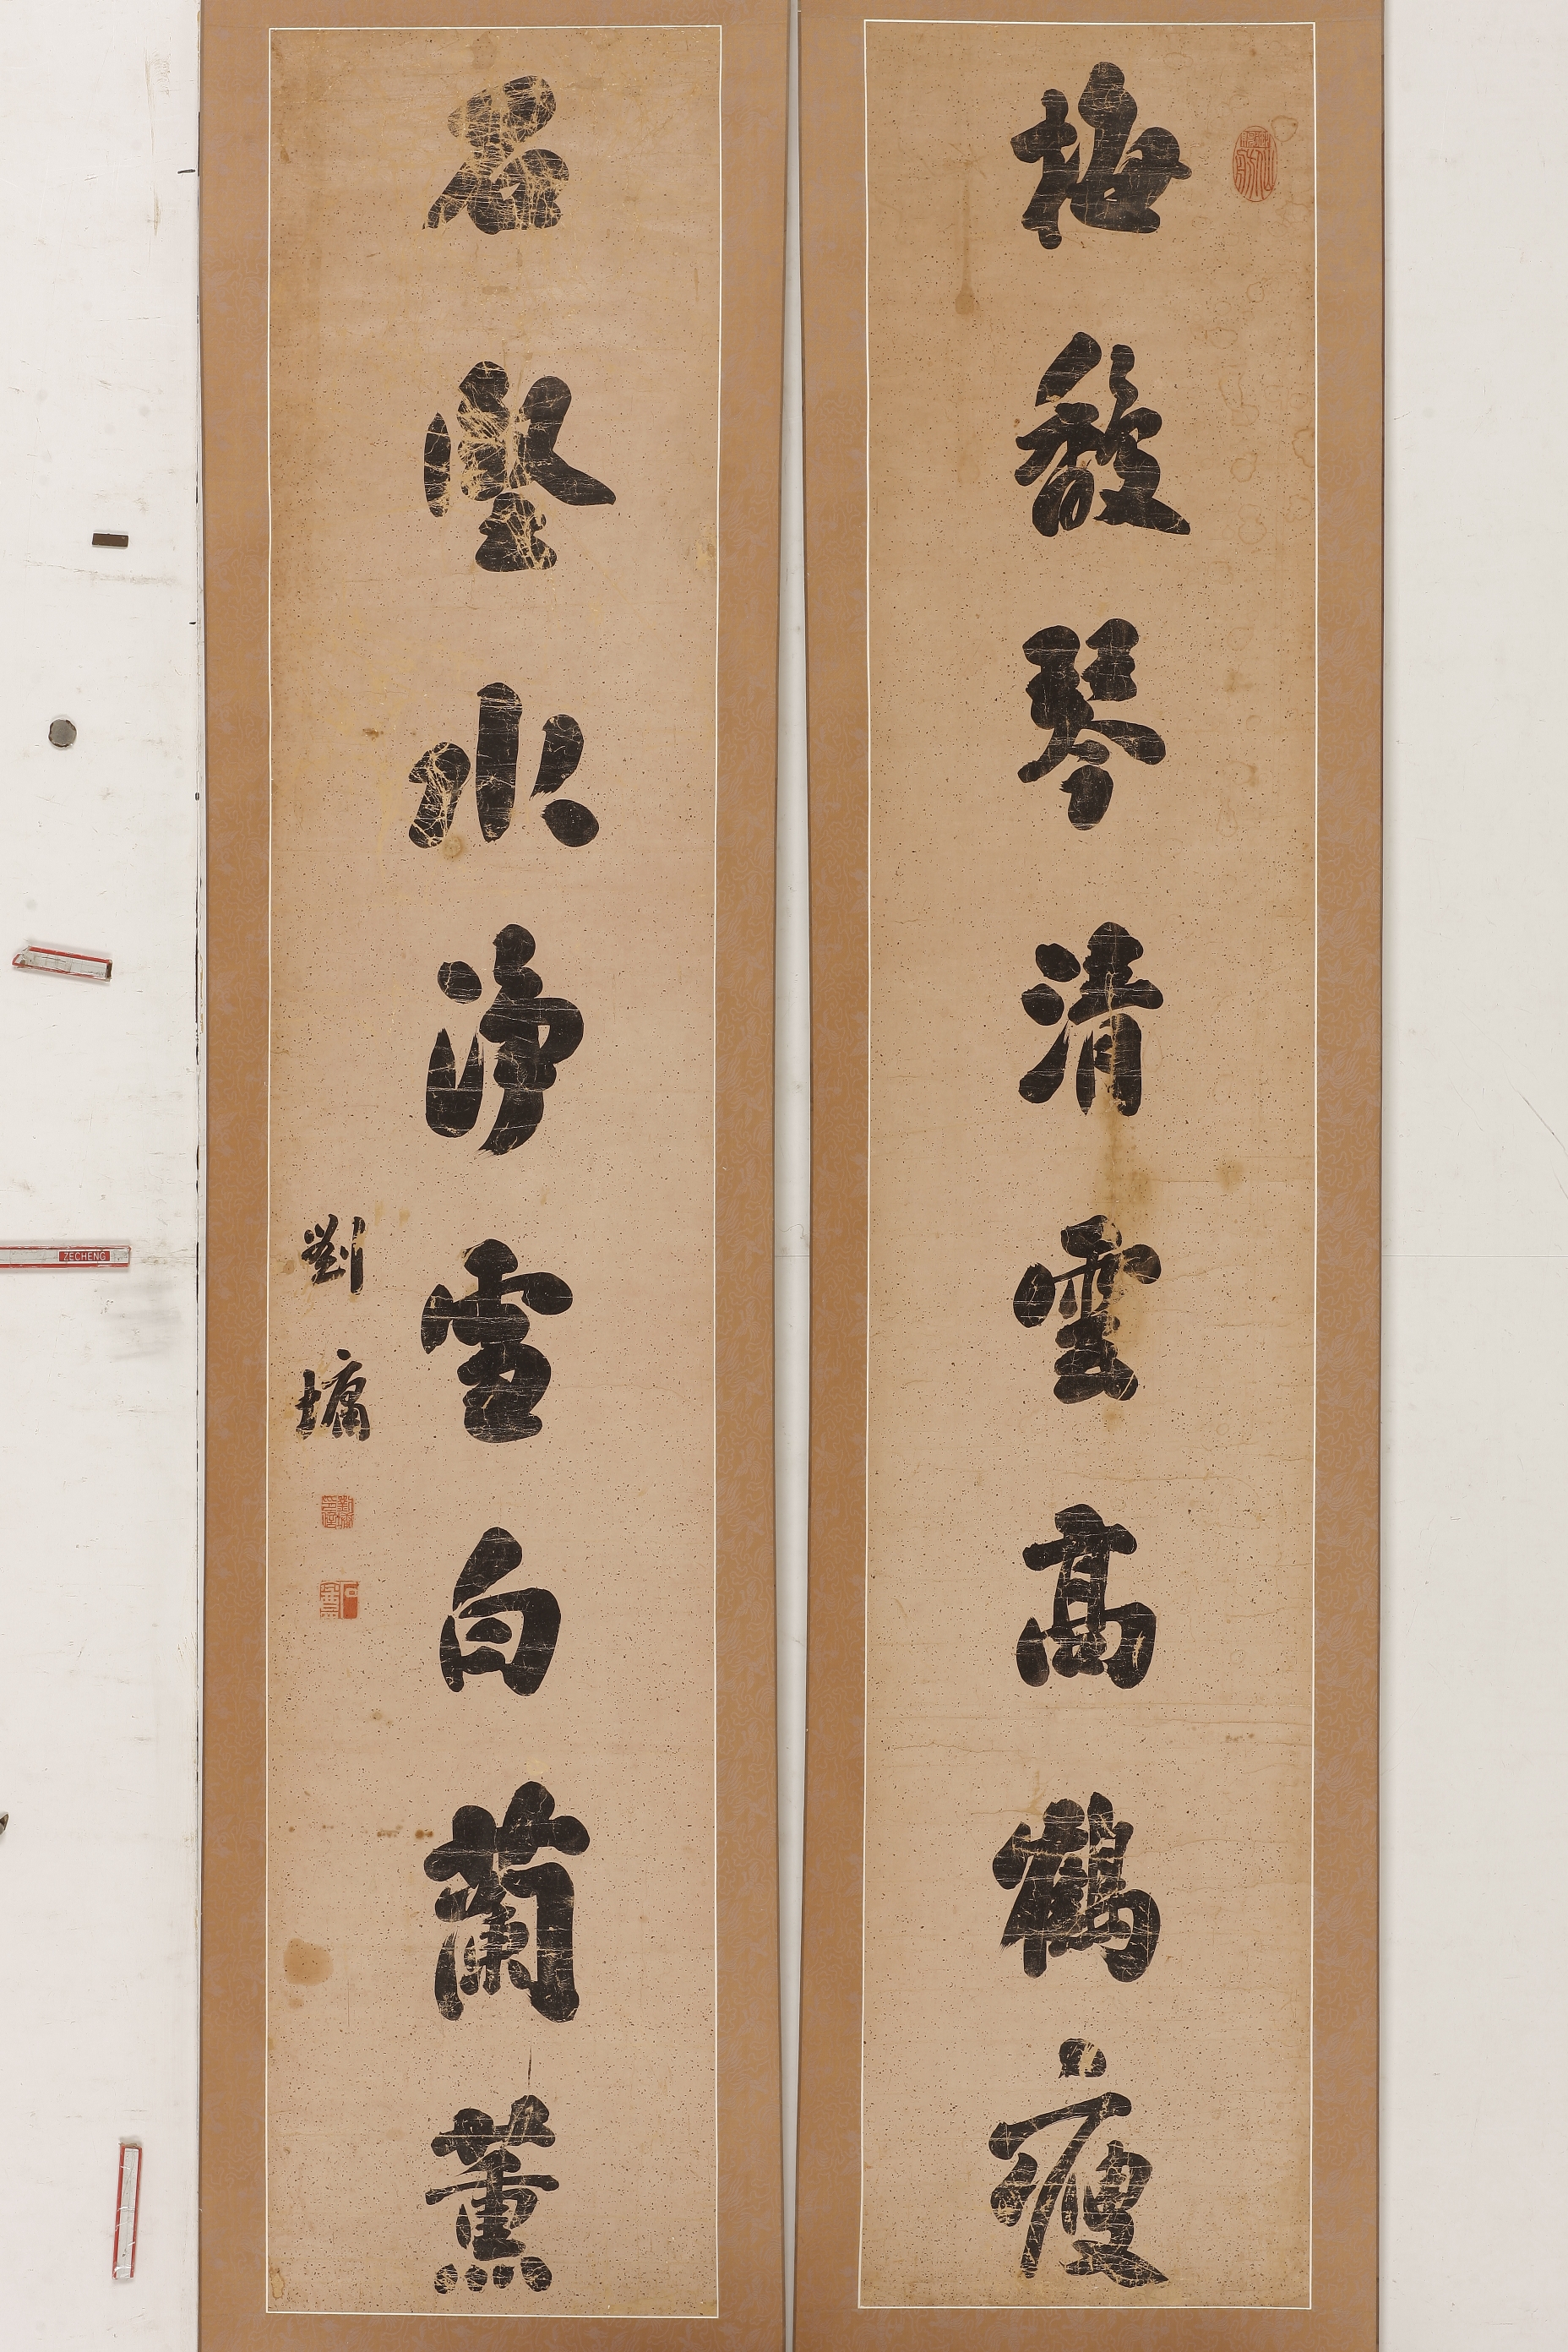 梅馥琴清雲高鶴瘦
石壑水淨雪白蘭薰
劉墉
ZECHENG